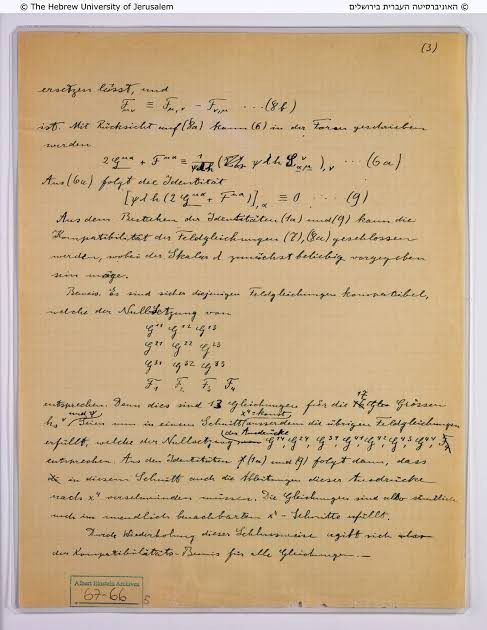 © The Hebrew University of Jerusalem
© האוניברסיטה העברית בירושלים
(3)
ersetzen lässt, und
F_μν ≡ F_μ,ν − F_ν,μ ... (8b)
ist. Mit Rücksicht auf (8a) kann (6) in der Form geschrieben
werden
2 G^μα + F^μα ≡ ( ψ λ h ),ν ... (6a)
Aus (6a) folgt die Identität
[ψ λ h (2 G^μα + F^μα)],α ≡ 0 ... (9)
Aus dem Bestehen der Identitäten (1a) und (9) kann die
Kompatibilität der Feldgleichungen (7), (8a) geschlossen
werden, wobei der Skalar λ zunächst beliebig vorgegeben
sein möge.
Beweis. Es sind sicher diejenigen Feldgleichungen kompatibel,
welche der Nullsetzung von
G^11 G^12 G^13
G^21 G^22 G^23
G^31 G^32 G^33
F_1 F_2 F_3 F_4
entsprechen. Denn dies sind 13 Gleichungen für die 17 Grössen
und ψ x^4 = konst
Seien nun in einem Schnitt ausserdem die übrigen Feldgleichungen
der Ausdrücke
erfüllt, welche der Nullsetzung G^14, G^24, G^34, G^41, G^42, G^43, G^44,
entsprechen. Aus den Identitäten (1a) und (9) folgt dann, dass
in diesem Schnitt auch die Ableitungen dieser Ausdrücke
nach x^4 verschwinden müssen. Die Gleichungen sind also sämtlich
auch im unendlich benachbarten x^4-Schnitte erfüllt.
Durch Wiederholung dieser Schlussweise ergibt sich
der Kompatibilitäts-Beweis für alle Gleichungen. —
Albert Einstein Archives
67-66
5